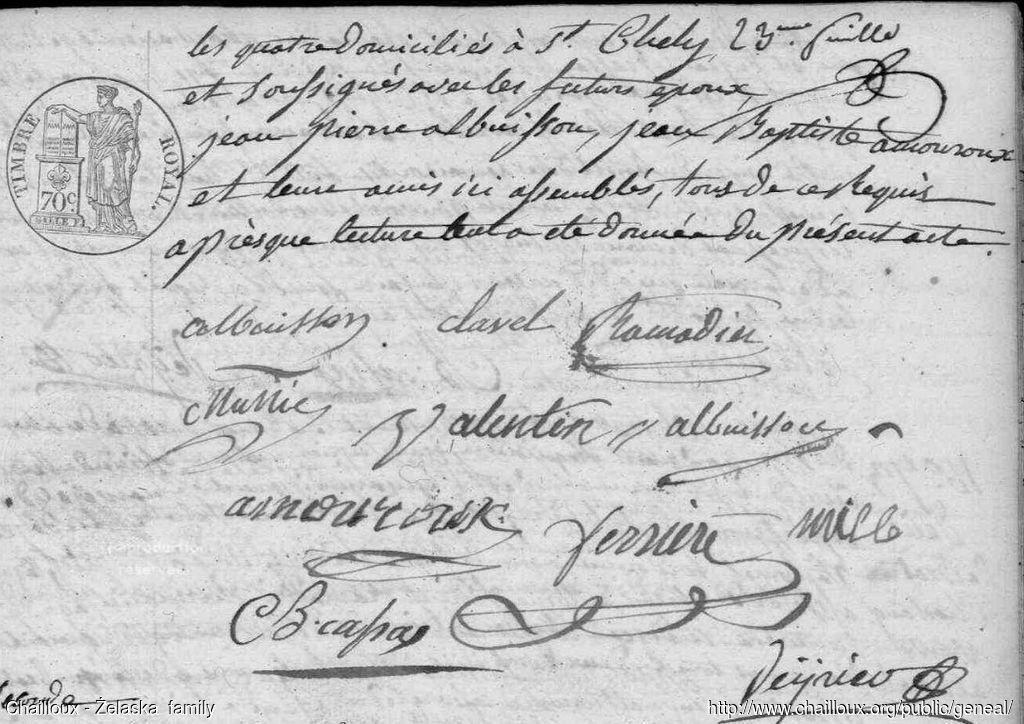 les quatre domiciliés à St. Chely, 23me feuille
et soussignés avec les futurs époux,
TIMBRE ROYAL.
70c
jean pierre albuisson, jean Baptiste amouroux
et leurs amis ici assemblés, tous de ce Requis
après que lecture leur a été donnée du présent acte.
albuisson clavel Ramadier
Massie Valentin albuisson
amouroux ferriere mille
CB. capas
seconde
Chailloux - Żelaska family http://www.chailloux.org/public/geneal/